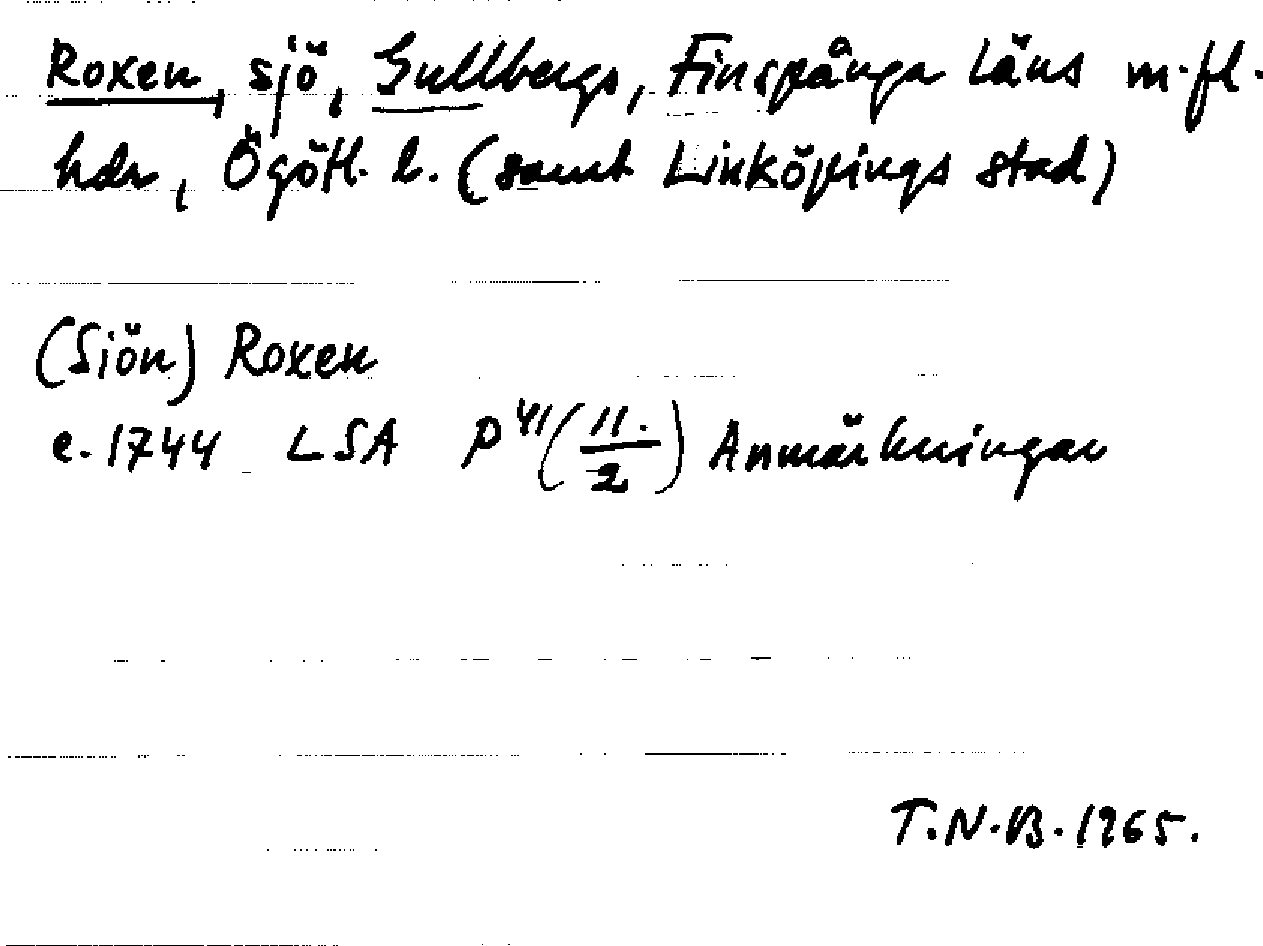 Roxen, sjö, Gullbergs, Finspånga läns m. fl.
hdr, Ögötl. l. (samt Linköpings stad)
(Siön) Roxen
e. 1744 LSA P⁴¹(11./2) Anmärkningar
T.N.B. 1965.